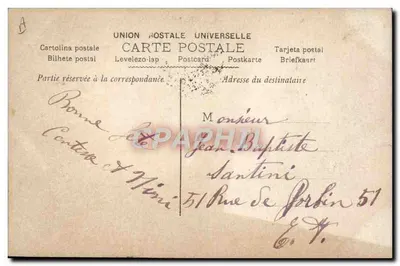 UNION POSTALE UNIVERSELLE
CARTE POSTALE
Cartolina postale Postkarte Tarjeta postal
Bilhete postal Levelezo-lap Postcard Postkarte Briefkaart
Partie réservée à la correspondance Adresse du destinataire
Bonne fête
et Nini
Monsieur
Jean Baptiste
Santini
51 Rue de 51
E. V.
EPARPHIL